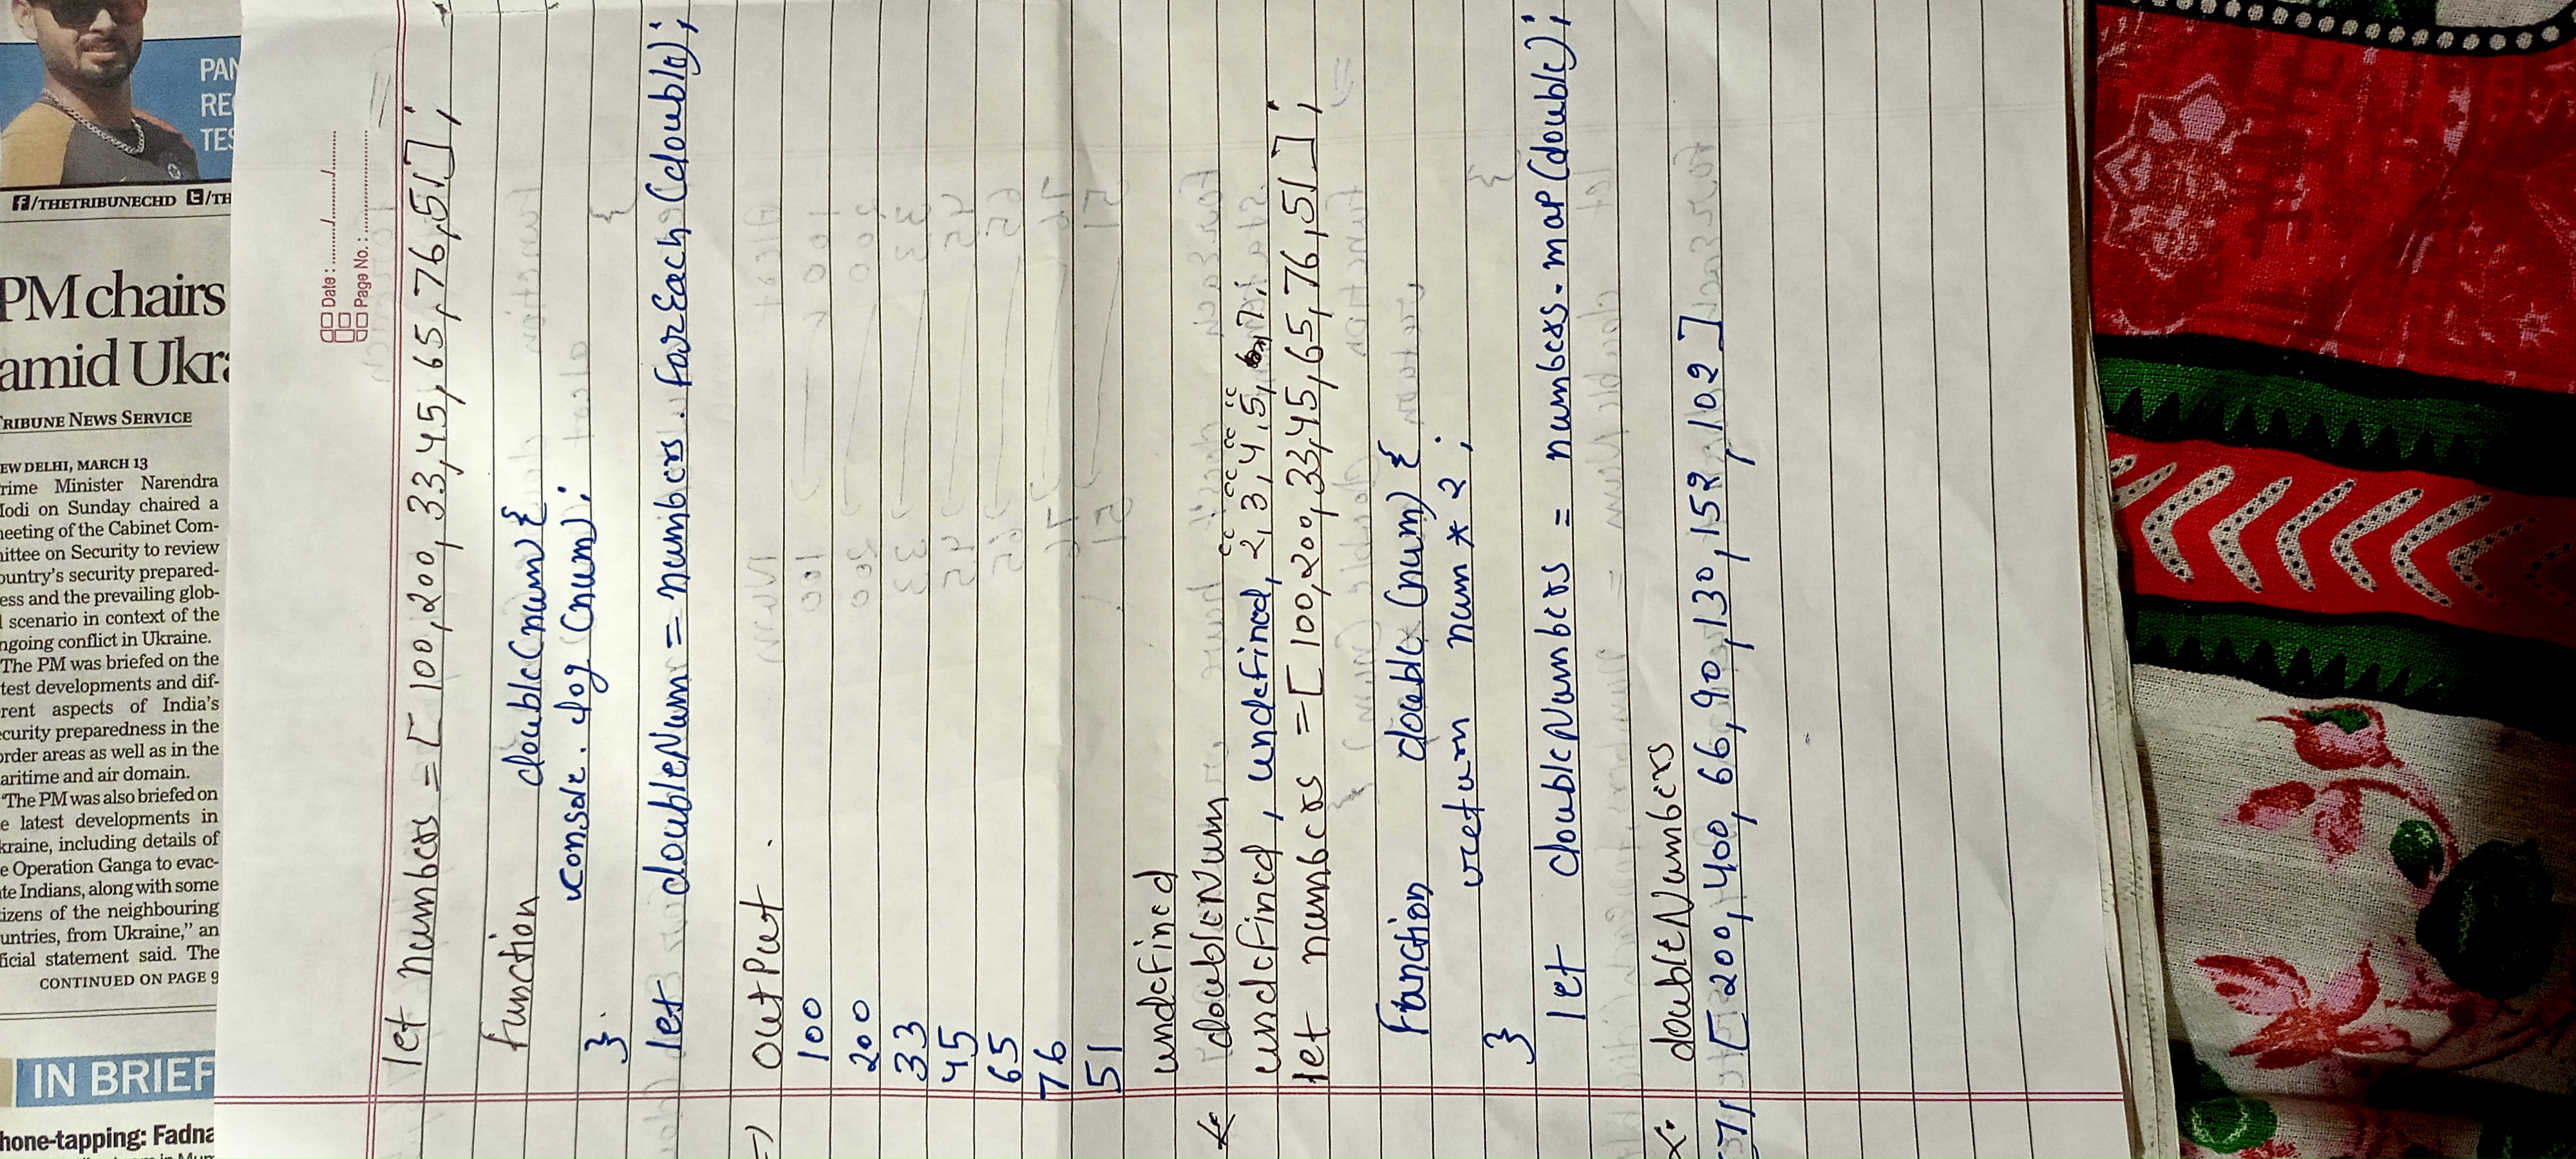 f/THETRIBUNECHD
PM chairs
amid Ukr
TRIBUNE NEWS SERVICE
NEW DELHI, MARCH 13
Prime Minister Narendra
Modi on Sunday chaired a
meeting of the Cabinet Com-
mittee on Security to review
country's security prepared-
ness and the prevailing glob-
al scenario in context of the
ongoing conflict in Ukraine.
The PM was briefed on the
latest developments and dif-
ferent aspects of India's
security preparedness in the
border areas as well as in the
maritime and air domain.
The PM was also briefed on
the latest developments in
Ukraine, including details of
the Operation Ganga to evac-
uate Indians, along with some
citizens of the neighbouring
countries, from Ukraine," an
official statement said. The
CONTINUED ON PAGE 9
IN BRIEF
hone-tapping: Fadna
Date : ........./........../..........
Page No. : ..........................
let numbers = [ 100, 200, 33, 45, 65, 76, 51 ] ;
function double(num) {
console. log (num) ;
}
let doubleNum = numbers . forEach (double) ;
=> output .
100
200
33
45
65
76
51
undefined
doubleNum
undefined, undefined, 2, 3, 4, 5, 6, 7;
let numbers = [ 100, 200, 33, 45, 65, 76, 51 ] ;
Function double (num) {
return num * 2 ;
}
let doubleNumbers = numbers. map (double) ;
doubleNumbers
(7) [ 200, 400, 66, 90, 130, 152, 102 ]